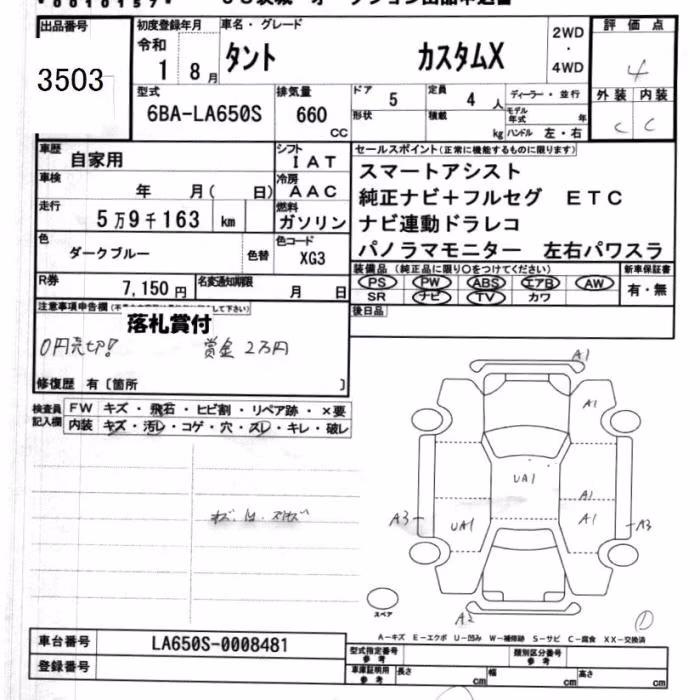 出品番号
3503
初度登録年月
令和
1 8月
車名・グレード
タント カスタムX
2WD
・
4WD
評価点
4
外装 内装
C C
型式
6BA-LA650S
排気量
660
cc
ドア
5
形状
定員
4 人
積載
kg
ディーラー・並行
モデル年式 年
ハンドル 左・右
車歴
自家用
車検
年 月( 日)
走行
5万9千163 km
色
ダークブルー
色替
シフト
IAT
冷房
AAC
燃料
ガソリン
色コード
XG3
R券
7,150円
名変通知期限
月 日
セールスポイント(正常に機能するものに限ります)
スマートアシスト
純正ナビ+フルセグ ETC
ナビ連動ドラレコ
パノラマモニター 左右パワスラ
装備品(純正品に限り○をつけてください)
PS PW ABS エアB AW
SR ナビ TV カワ
新車保証書
有・無
後日品
注意事項申告欄
落札賞付
0円売切!
賞金2万円
修復歴 有〔箇所 〕
検査員記入欄
FW キズ・飛石・ヒビ割・リペア跡・×要
内装 キズ・汚レ・コゲ・穴・スレ・キレ・破レ
A1
A1
UA1
A1
A1
A3
UA1
A3
A2
スペア
1
A-キズ E-エクボ U-凹み W-補修跡 S-サビ C-腐食 XX-交換済
車台番号
LA650S-0008481
登録番号
型式指定番号
参考
類別区分番号
参考
車庫証明用
参考
長さ cm
幅 cm
高さ cm